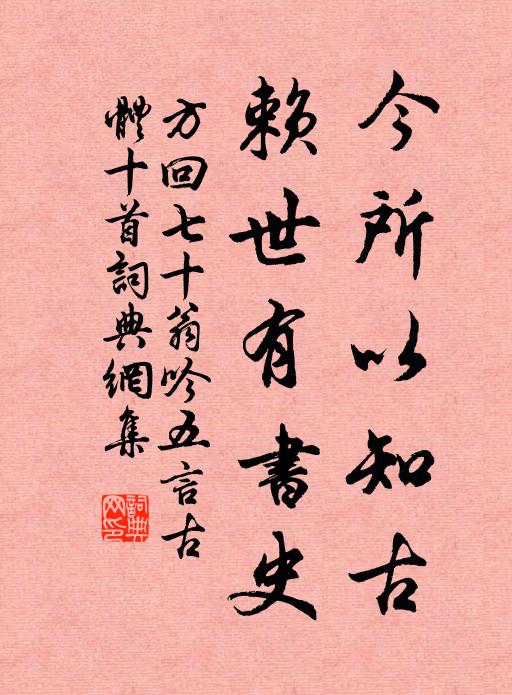 今所以知古
賴世有書史
方回七十翁吟五言古
體十首詞典網集
詞典網印